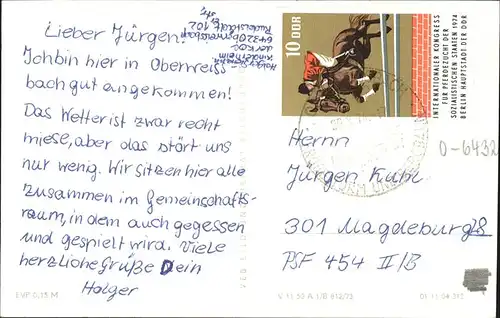 Lieber Jürgen!
Ich bin hier in Oberweiß-
bach gut angekommen!
Das Wetter ist zwar recht
miese, aber das stört uns
nur wenig. Wir sitzen hier alle
zusammen im Gemeinschafts-
raum, in dem auch gegessen
und gespielt wird. Viele
herzliche Grüße Dein
Holger
6432 Oberweissbach
10 DDR
INTERNATIONALER KONGRESS
FÜR PFERDEZUCHT DER
SOZIALISTISCHEN STAATEN 1974
BERLIN HAUPTSTADT DER DDR
O-6432
Herrn
Jürgen Kuhl
301 Magdeburg 28
PSF 454 II/B
EVP 0,15 M